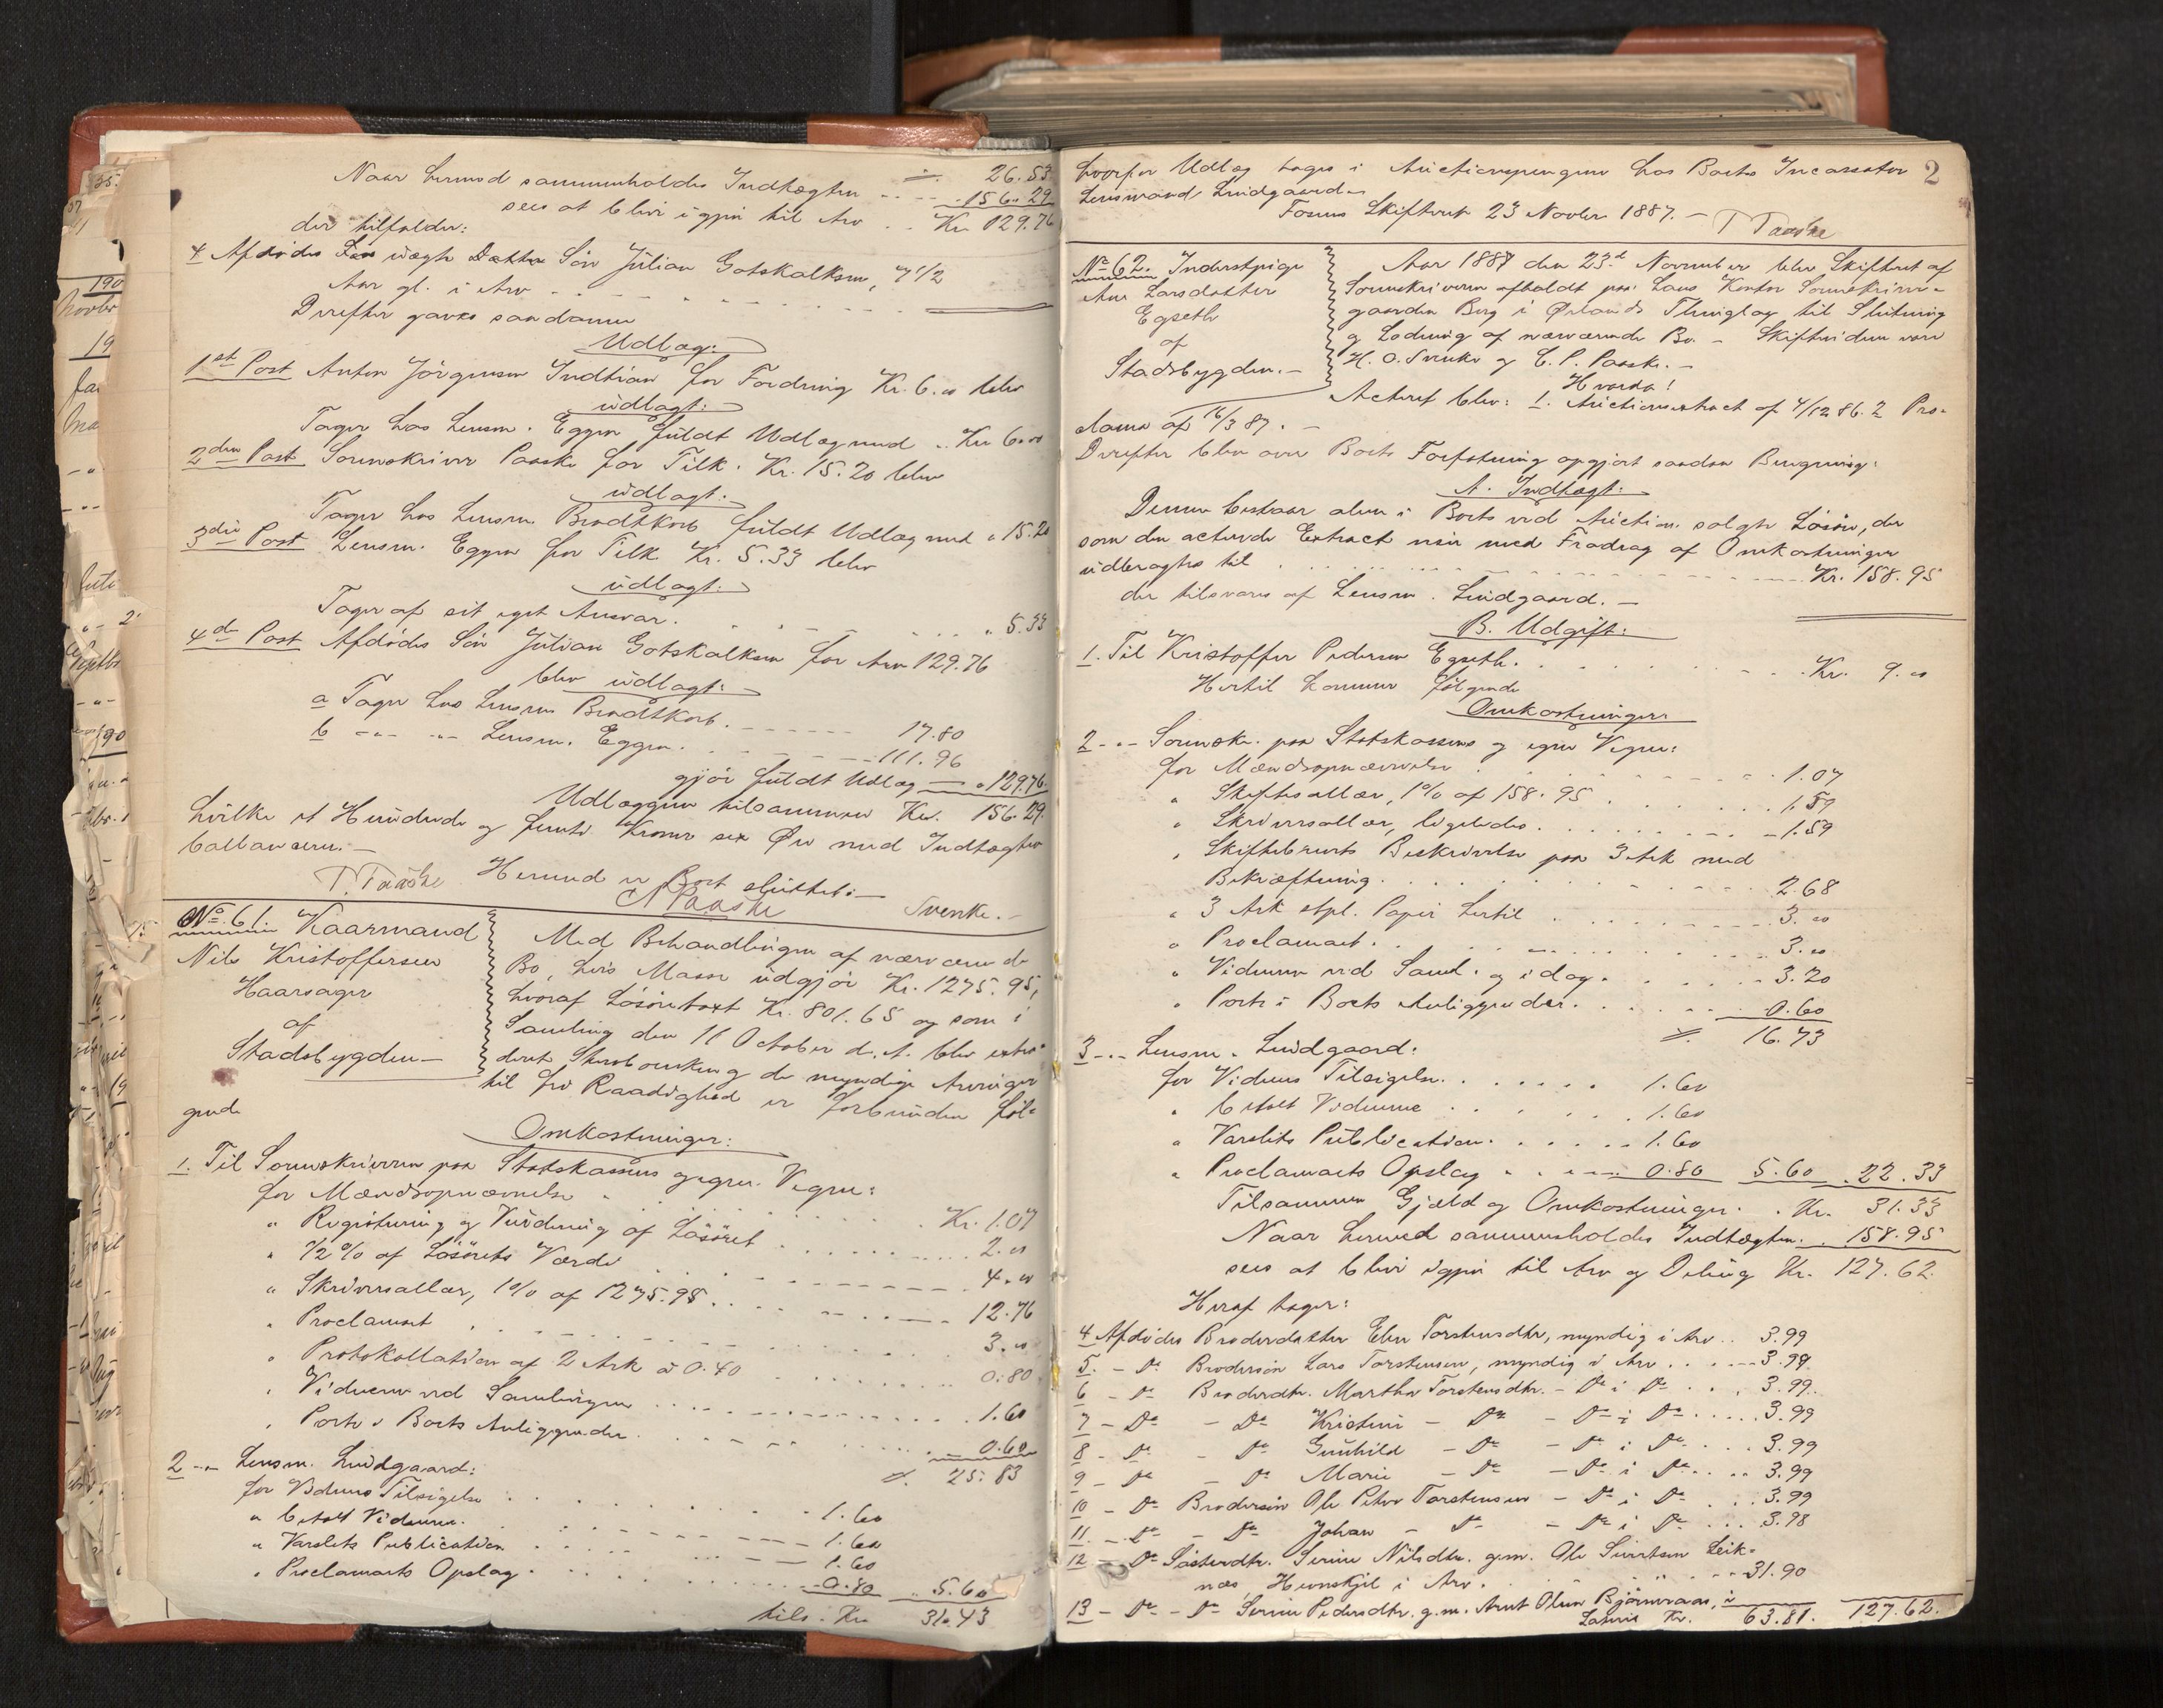 Naar hermed sammenholdes Indtægten .. ./. 26.53
156.29
sees at blive igjen til Arv .. Kr. 129.76
der tilfalder:
4 Afdødes Søn Julian Gotskalksen, 7 1/2
Aar gl. i Arv
Derefter gaves saadanne
Udlæg:
1st Post Anton Jörgensen Indtian for Fordring Kr. 6.00 blev
udlagt:
Tager hos Lensm. Eggen fuldt Udlæg med .. Kr. 6.00
2den Post Sorenskriver Paaske for Tilk. Kr. 15.20 blev
udlagt:
Tager hos Lensm. Brodtkorb fuldt Udlæg med " 15.20
3die Post Lensm. Eggen for Tilk. Kr. 5.33 blev
udlagt:
Tager af sit eget Ansvar. " 5.33
4de Post Afdødes Sön Julian Gotskalksen for Arv 129.76
blev udlagt:
a Tager hos Lensm. Brodtkorb. 17.80
b -"- -"- Lensm. Eggen. 111.96
gjör fuldt Udlæg " 129.76
Udlæggene tilsammen Kr. 156.29.
hvilke et Hundrede og femti Kroner sex Øre med Indtægten
ballancerer.—
Hermed er Boet sluttet:—
T. Paaske
Svenke.—
No 61. Kaarmand
Nils Kristoffersen
Haarsager
af
Stadsbygden—
Med Behandlingen af nærværende
Bo, hvis Masse udgjör Kr. 1275.95,
hvoraf Lösöretaxt Kr. 801.65 og som i
Samling den 11 October d. A. blev extra-
deret Skarboenken og de myndige Arvinger
til fri Raadighed er forbunden föl-
gende
Omkostninger:
1. Til Sorenskriveren paa Statskassens og egne Vegne:
for Mændsopnævnelse Kr. 1.07
" Registrering og Vurdering af Lösöret 2.00
" 1/2 % af Lösörets Værdi 4.00
" Skriversallær, 1 % af 1275.95 12.76
" Proclamaet 3.00
" Protokollation af 2 Ark à 0.40 0.80
" Vidnerne ved Samlingen 1.60
" Porto i Boets Anliggender 0.60
./. 25.83
2 -"- Lensm. Lindgaard:
for Vidners Tilsigelse 1.60
" betalt Vidnerne. 1.60
" Varslets Publication 1.60
" Proclamaets Opslag 0.80 .. 5.60
tils. Kr. 31.43
2
hvorfor Udlæg tages i Auctionspengene hos Boets Incassator
Lensmand Lindgaard.
Fosens Skifteret 23 Novbr 1887. — T Paaske
No 62. Inderstpige
Ane Larsdatter
Egseth
af
Stadsbygden.—
Aar 1887 den 23de November blev Skifteret af
Sorenskriveren afholdt paa hans Kontor Sorenskriver-
gaarden Berg i Ørlands Thinglag til Slutning
og Lodning af nærværende Bo. — Skiftevidner vare
H. O. Svenke og C. P. Paaske.—
Hvorda!
Acteret blev: 1. Auctionsextract af 4/12 86. 2 Pro-
clama af 16/3 87.—
Derefter blev over Boets Forfatning opgjort saadan Beregning:
A. Indtægt:
Denne bestaar alene i Boets ved Auction solgte Lösöre, der
som den acterede Extract viser med Fradrag af Omkostninger
udbragtes til Kr. 158.95
der tilsvares af Lensm. Lindgaard.—
B. Udgift:
1. Til Kristoffer Pedersen Egseth. Kr. 9.00
Hertil kommer følgende
Omkostninger:
2 -"- Sorenskr. paa Statskassens og egne Vegne:
for Mændsopnævnelse 1.07
" Skiftesallær, 1 % af 158.95 1.59
" Skriversallær, ligeledes 1.59
" Skiftebrevets Beskrivelse paa 3 Ark med
Bekræftning 2.68
" 3 Ark stpl. Papir hertil 3.00
" Proclamaet 3.00
" Vidnerne ved Saml. og idag 3.20
" Porto i Boets Anliggender 0.60
./. 16.73
3 -"- Lensm. Lindgaard:
for Vidners Tilsigelse 1.60
" betalt Vidnerne 1.60
" Varslets Publication 1.60
" Proclamaets Opslag 0.80 5.60 .. 22.33
Tilsammen Gjæld og Omkostninger. . Kr. 31.33
Naar hermed sammenholdes Indtægten. . 158.95
sees at blive igjen til Arv og Deling Kr. 127.62.
Heraf tager:
4 Afdødes Broderdatter Elen Torstensdtr, myndig i Arv .. 3.99
5. - Do Brodersön Lars Torstensen, myndig i Arv .... 3.99
6 - Do Broderdtr. Martha Torstensdtr. - Do i Do ... 3.99
7 - Do - Do Kristine - Do - Do i Do .... 3.99
8 - Do - Do Gunhild - Do - Do i Do .... 3.99
9 - Do - Do Marie - Do - Do i Do .... 3.99
10 - Do Brodersön Ole Peter Torstensen - Do i Do ... 3.99
11. - Do - Do Johan - Do - Do i Do ... 3.98
12 - Do Søsterdtr. Serine Nilsdtr. g.m. Ole Sivertsen Leik-
næs, Hevnskjel i Arv. 31.90
13 - Do - Do Serine Pedersdtr. g.m. Arnt Olsen Björnraas, i
Lateris Kr. 63.81. 127.62.